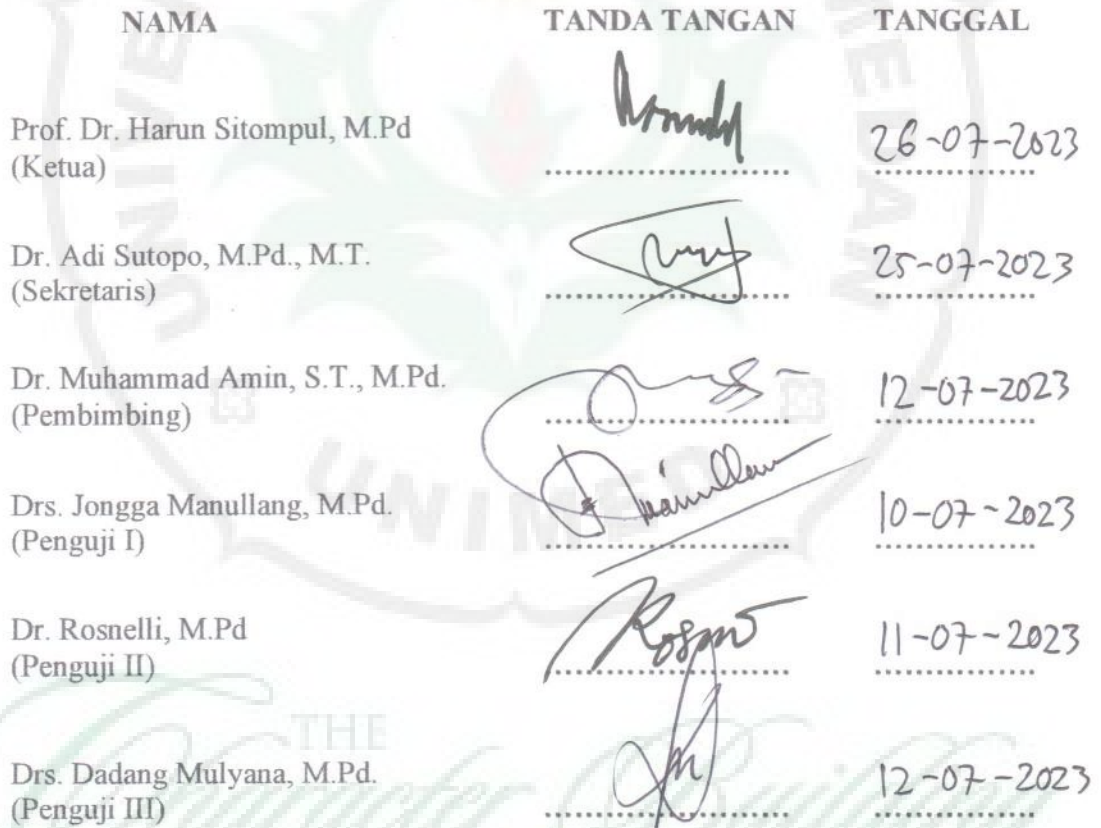 NAMA TANDA TANGAN TANGGAL
Prof. Dr. Harun Sitompul, M.Pd
(Ketua) 26-07-2023
Dr. Adi Sutopo, M.Pd., M.T.
(Sekretaris) 25-07-2023
Dr. Muhammad Amin, S.T., M.Pd.
(Pembimbing) 12-07-2023
Drs. Jongga Manullang, M.Pd.
(Penguji I) 10-07-2023
Dr. Rosnelli, M.Pd
(Penguji II) 11-07-2023
Drs. Dadang Mulyana, M.Pd.
(Penguji III) 12-07-2023
UNIMED
THE